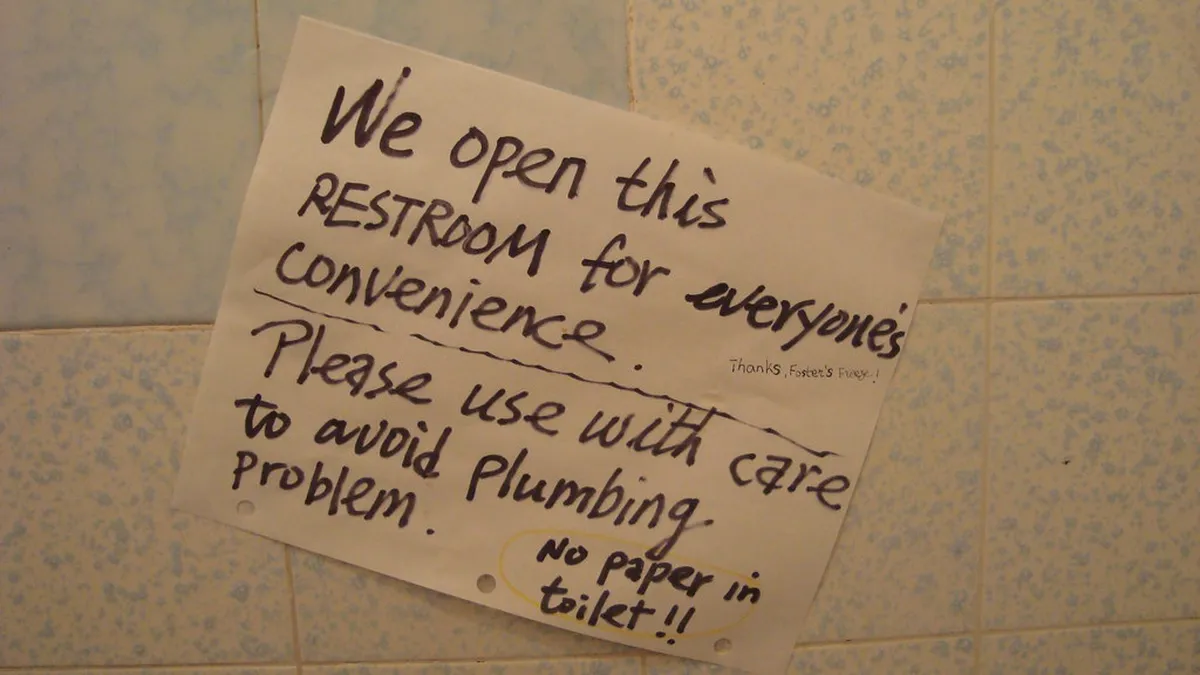 We open this
RESTROOM for everyone's
convenience.
Thanks, Foster's Freeze!
Please use with care
to avoid plumbing
problem.
No paper in
toilet!!